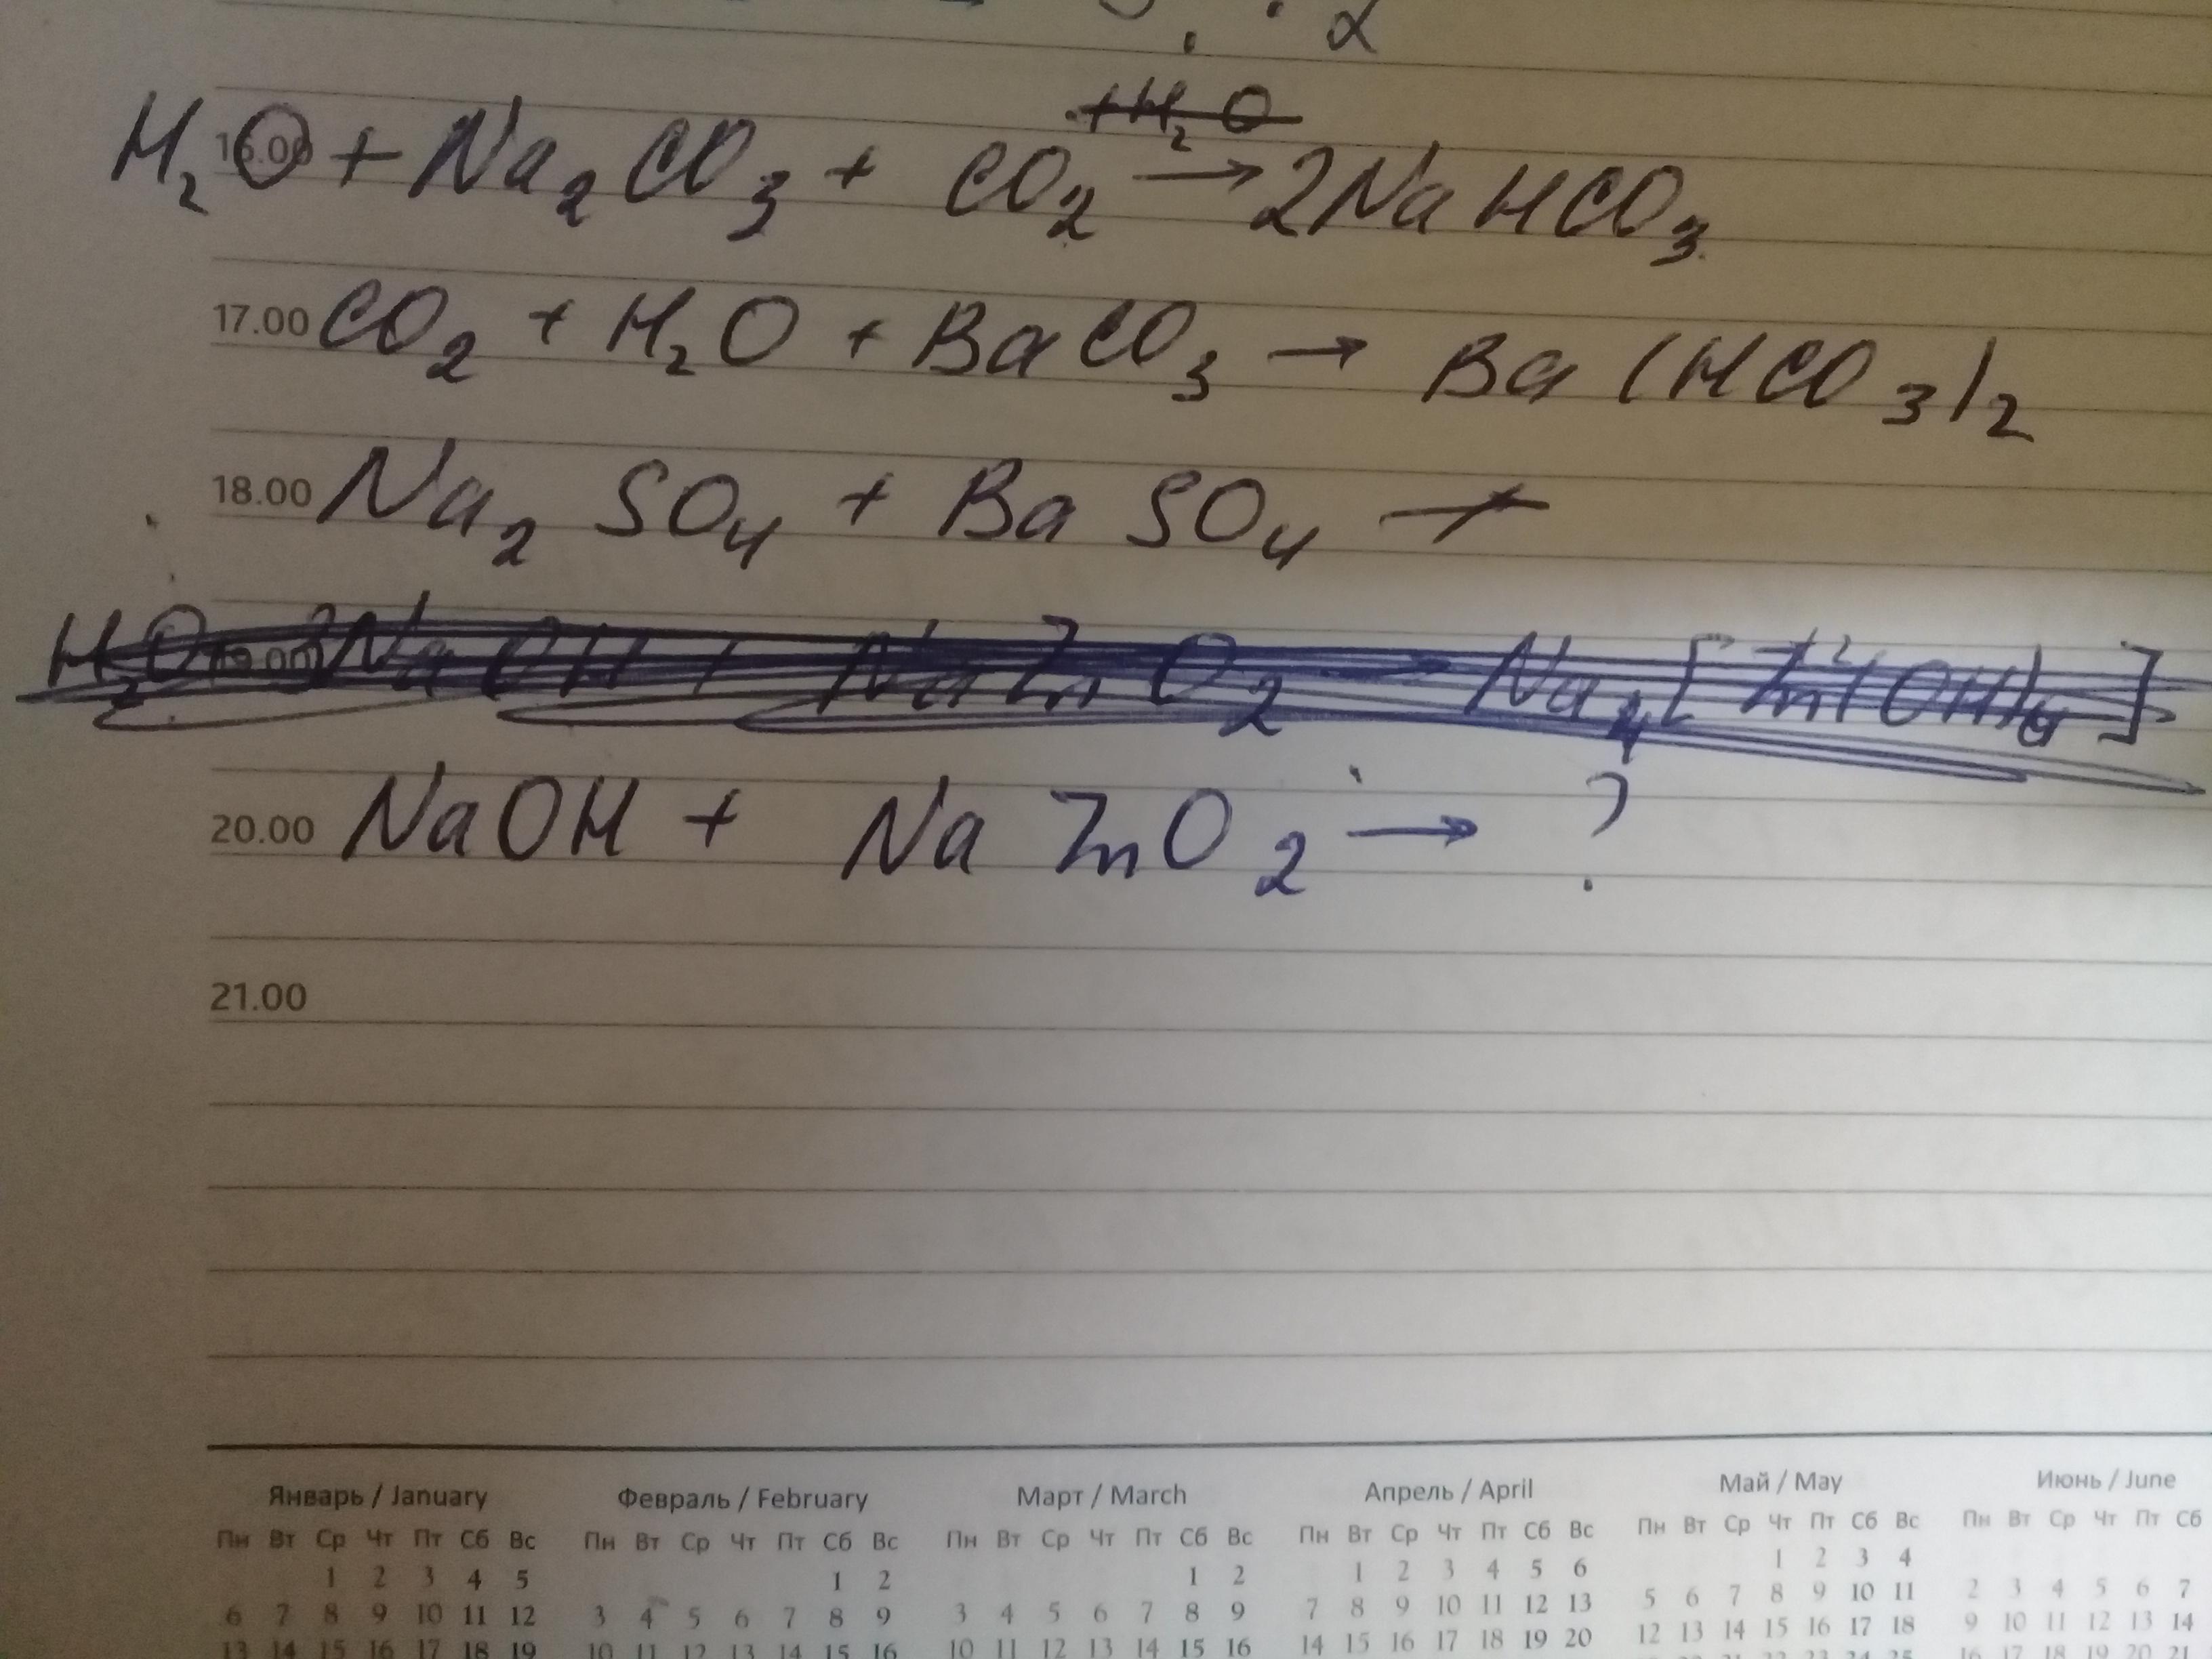 α
+H₂O
H₂O + Na₂CO₃ + CO₂ → 2NaHCO₃
16.00
17.00 CO₂ + H₂O + BaCO₃ → Ba(HCO₃)₂
18.00 Na₂SO₄ + BaSO₄ ↛
19.00 H₂O NaOH + NaZnO₂ → Na₄[Zn(OH)₆]
20.00 NaOH + NaZnO₂ → ?
21.00
Январь / January Февраль / February Март / March Апрель / April Май / May Июнь / June
Пн Вт Ср Чт Пт Сб Вс Пн Вт Ср Чт Пт Сб Вс Пн Вт Ср Чт Пт Сб Вс Пн Вт Ср Чт Пт Сб Вс Пн Вт Ср Чт Пт Сб Вс Пн Вт Ср Чт Пт Сб
1 2 3 4 5 1 2 1 2 1 2 3 4 5 6 1 2 3 4
6 7 8 9 10 11 12 3 4 5 6 7 8 9 3 4 5 6 7 8 9 7 8 9 10 11 12 13 5 6 7 8 9 10 11 2 3 4 5 6 7
13 14 15 16 17 18 19 10 11 12 13 14 15 16 10 11 12 13 14 15 16 14 15 16 17 18 19 20 12 13 14 15 16 17 18 9 10 11 12 13 14